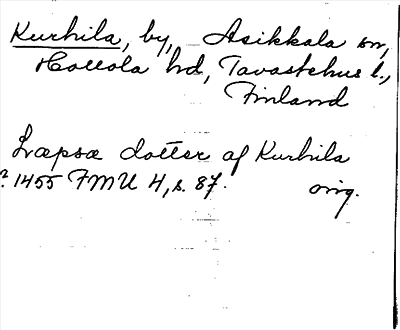 Kurhila, by, Asikkala sn,
Hollola hd, Tavastehus l.,
Finland
Læpsæ dotter af Kurhila
? 1455 FMU 4, s. 87. orig.